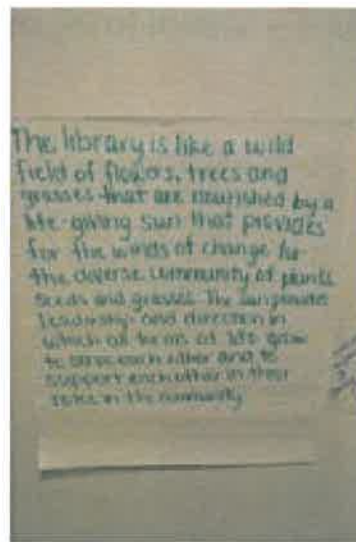 The library is like a wild
field of flowers, trees and
grasses that are nourished by a
life-giving sun that provides
for the winds of change for
the diverse community of plants
seeds and grasses. The sun provides
leadership and direction in
which all forms of life grow
to serve each other and to
support each other in their
roles in the community